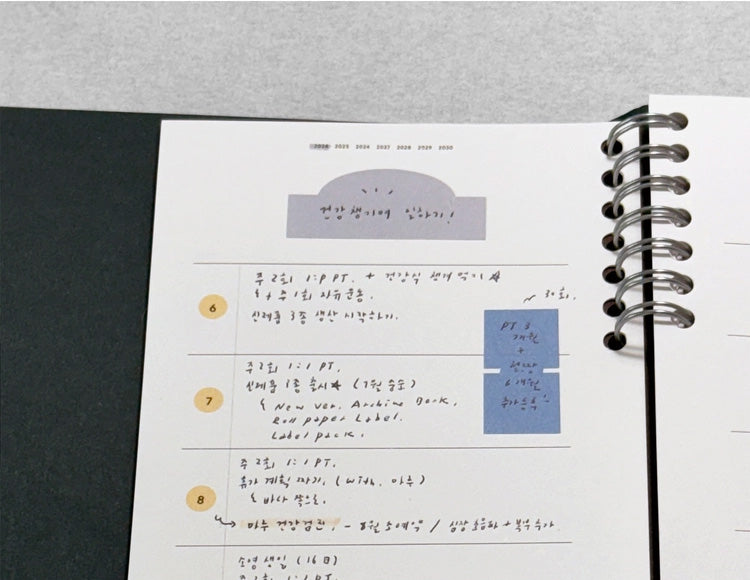 2026 2025 2024 2027 2028 2029 2030
건강 챙기며 일하기!
6
주 2회 1:1 PT. + 건강식 챙겨먹기
+ 주 1회 자유운동.
신제품 3종 생산 시작하기.
~ 30회.
PT 3
개월
+
헬짱
6개월
추가등록
7
주 2회 1:1 PT.
신제품 3종 출시★ (7월 중순)
New ver. Archive Book.
Roll paper Label.
Label pack.
8
주 2회 1:1 PT.
휴가 계획 짜기. (with. 마루)
바다 쪽으로.
→ 마루 건강검진. - 8월 초 예약 / 심장초음파 + 복부 추가.
소영생일 (16日)
주 2회 1:1 PT.